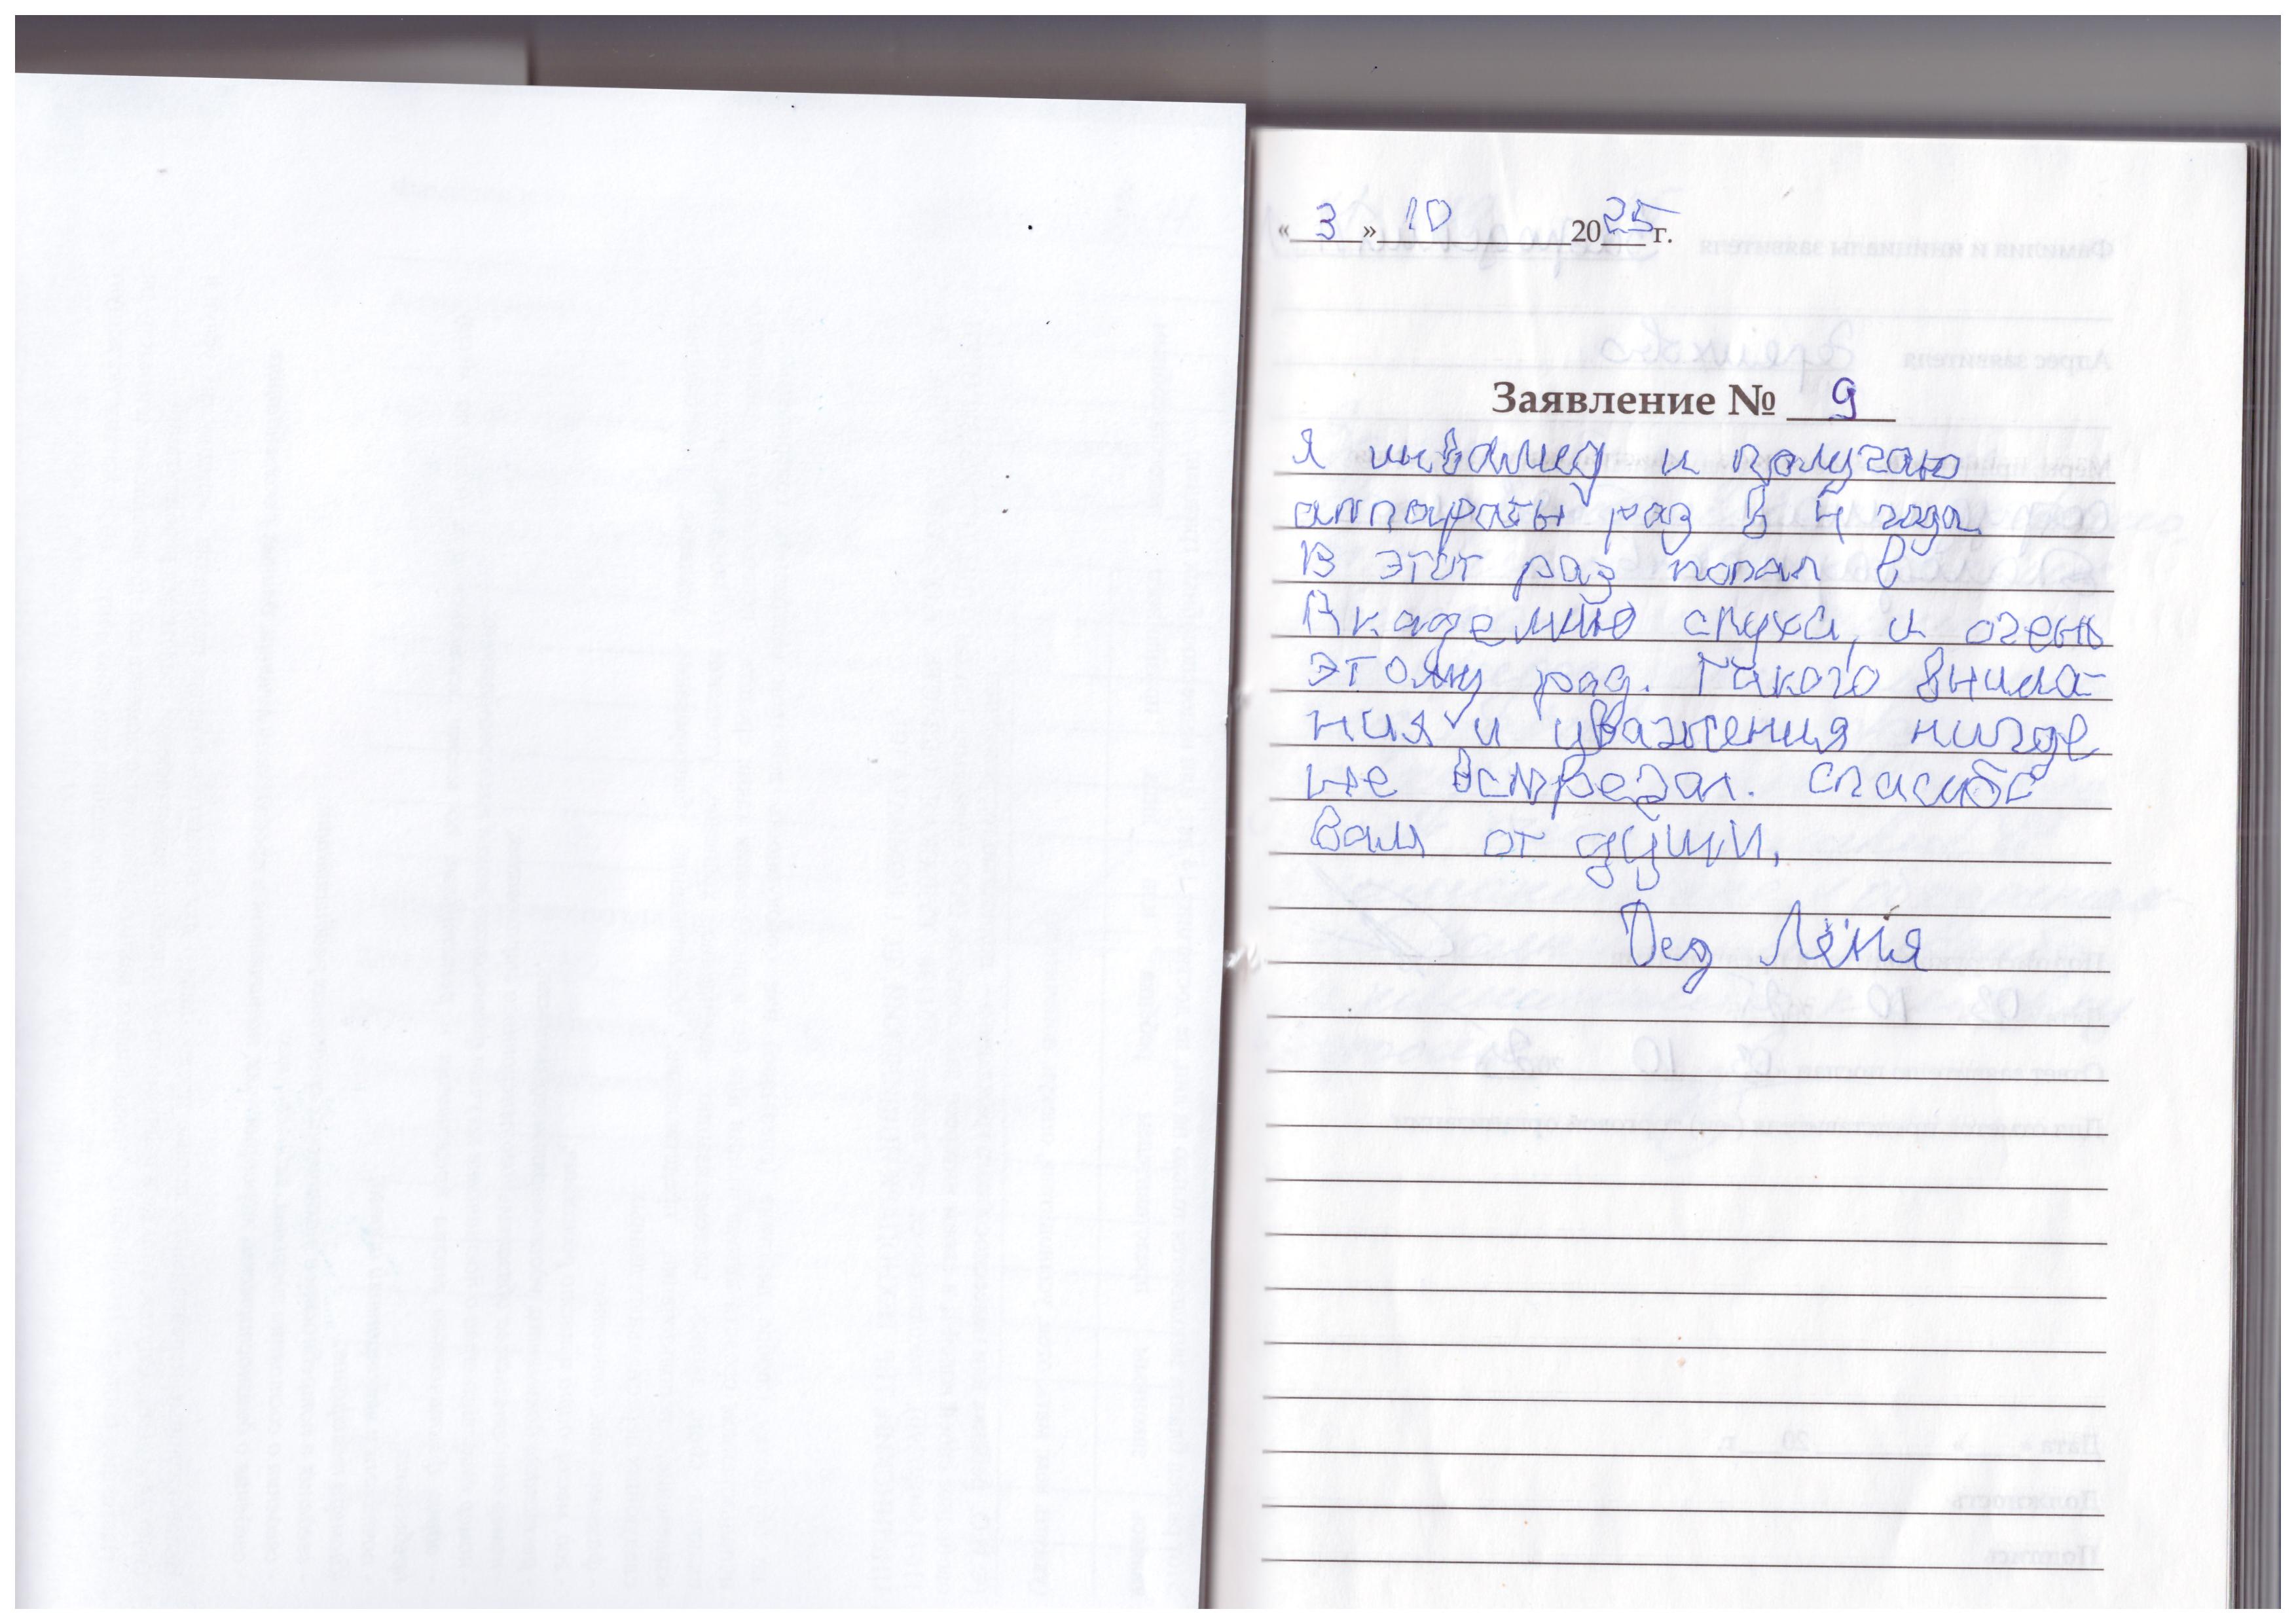 «3» 10 2025 г.
Заявление № 9
Я инвалид и получаю
аппараты раз в 4 года
В этот раз попал в
Академию слуха, и очень
этому рад. Такого внима-
ния и уважения нигде
не встречал. Спасибо
Вам от души,
Дед Лёня